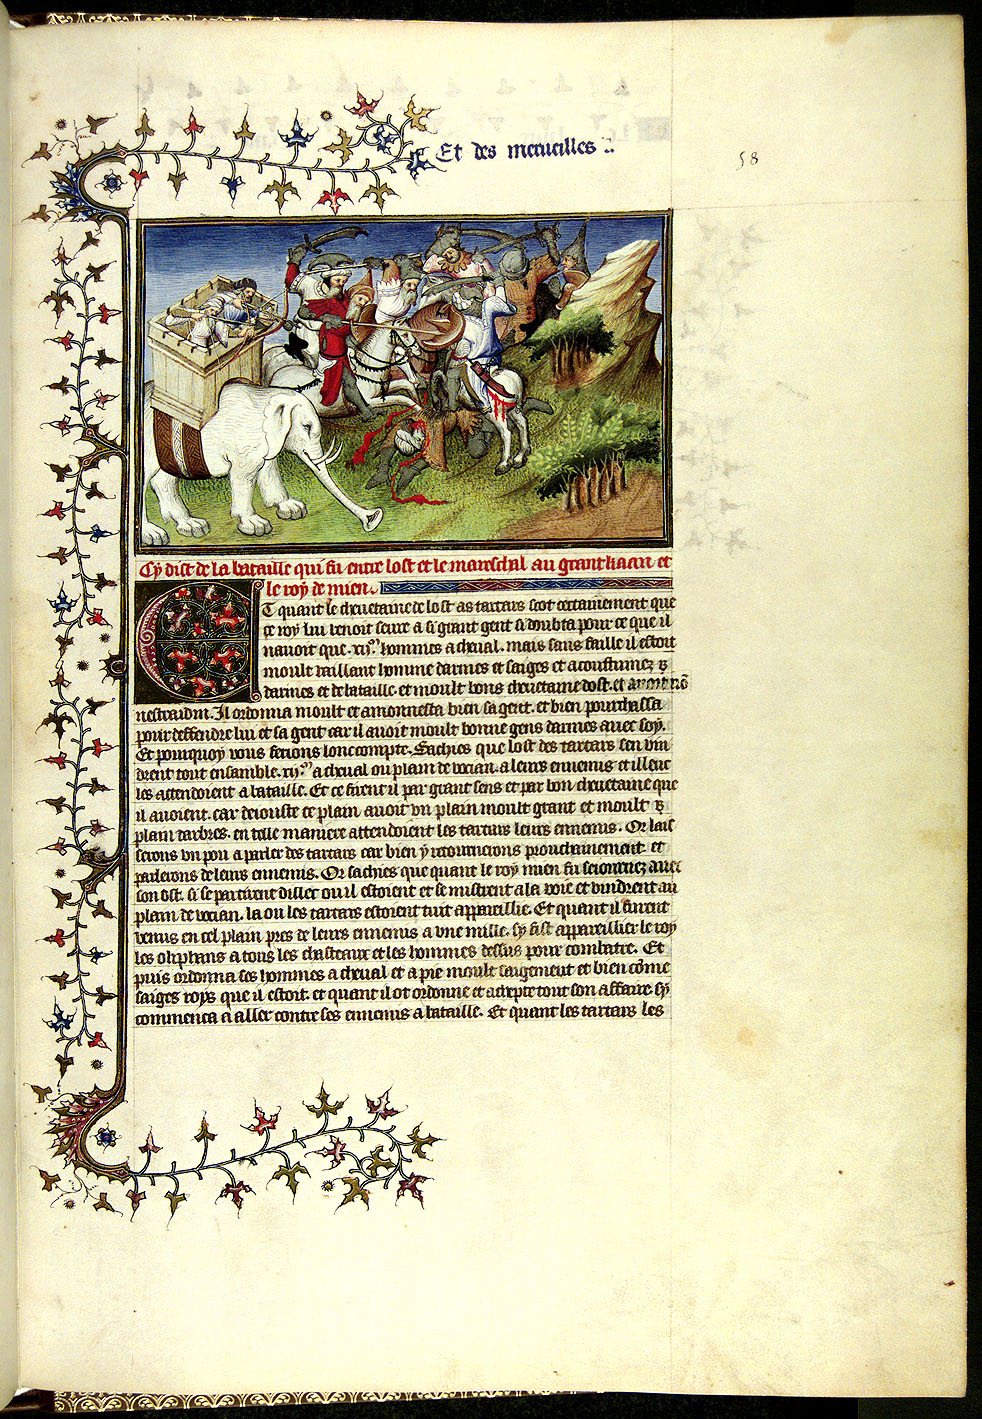 Et des merueilles
58
Cy dist de la bataille qui fu entre lost et le mareschal au grant kaan et
le roy de mien.
Et quant le cheuetaine de lost as tartars scot certainement que
ce roy lui venoit seure a si grant gent si doubta pour ce que il
nauoit que .xij.m hommes a cheual. mais sans faille il estoit
moult vaillant homme darmes et saiges et acoustumez
darmes et de bataille. et moult bons cheuetaine dost. et
Il ordonna moult et amonnesta bien sa gent. et bien pourchassa
pour deffendre lui et sa gent car il auoit moult bonne gens darmes auec soy.
Et pourquoy vous ferons lonc compte. Sachies que lost des tartars sen vin
drent tout ensamble .xij.m a cheual ou plain de vocian. a leurs ennemis et illeuc
les attendoient a bataille. Et ce firent il par grant sens et par bon cheuetaine que
il auoient. car deiouste ce plain auoit vn plain moult grant et moult
plain darbres. en telle maniere attendoient les tartars leurs ennemis. Or lais
serons vn pou a parler des tartars car bien y retournerons prouchainement et
parlerons de leurs ennemis. Or sachies que quant le roy mien fu seiournez auec
son ost. si se partirent dillec ou il estoient et se mistrent a la voie et vindrent au
plain de vocian. la ou les tartars estoient tuit appareillie. Et quant il furent
venus en cel plain pres de leurs ennemis a vne mille. sy fist appareillier le roy
les oliphans a tous les chasteaux et les hommes dessus pour combatre. Et
puis ordonna ses hommes a cheual et a pie moult saigement et bien cõme
saiges roys que il estoit. et quant il ot ordonne et adrepte tout son affaire sy
commenca a aller contre ses ennemis a bataille. Et quant les tartars les